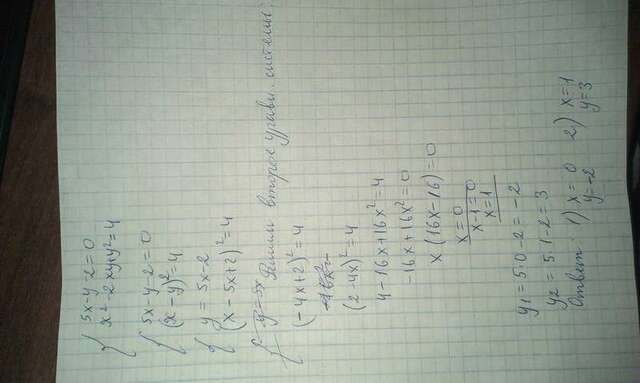 5x-y-2=0
x²-2xy+y²=4
5x-y-2=0
(x-y)²=4
y=5x-2
(x-5x+2)²=4
y=5x Решим второе уравн. системы:
(-4x+2)²=4
(2-4x)²=4
4-16x+16x²=4
-16x+16x²=0
x(16x-16)=0
x=0
x-1=0
x=1
y1=5·0-2=-2
y2=5·1-2=3
Ответ: 1) x=0 2) x=1
y=-2 y=3